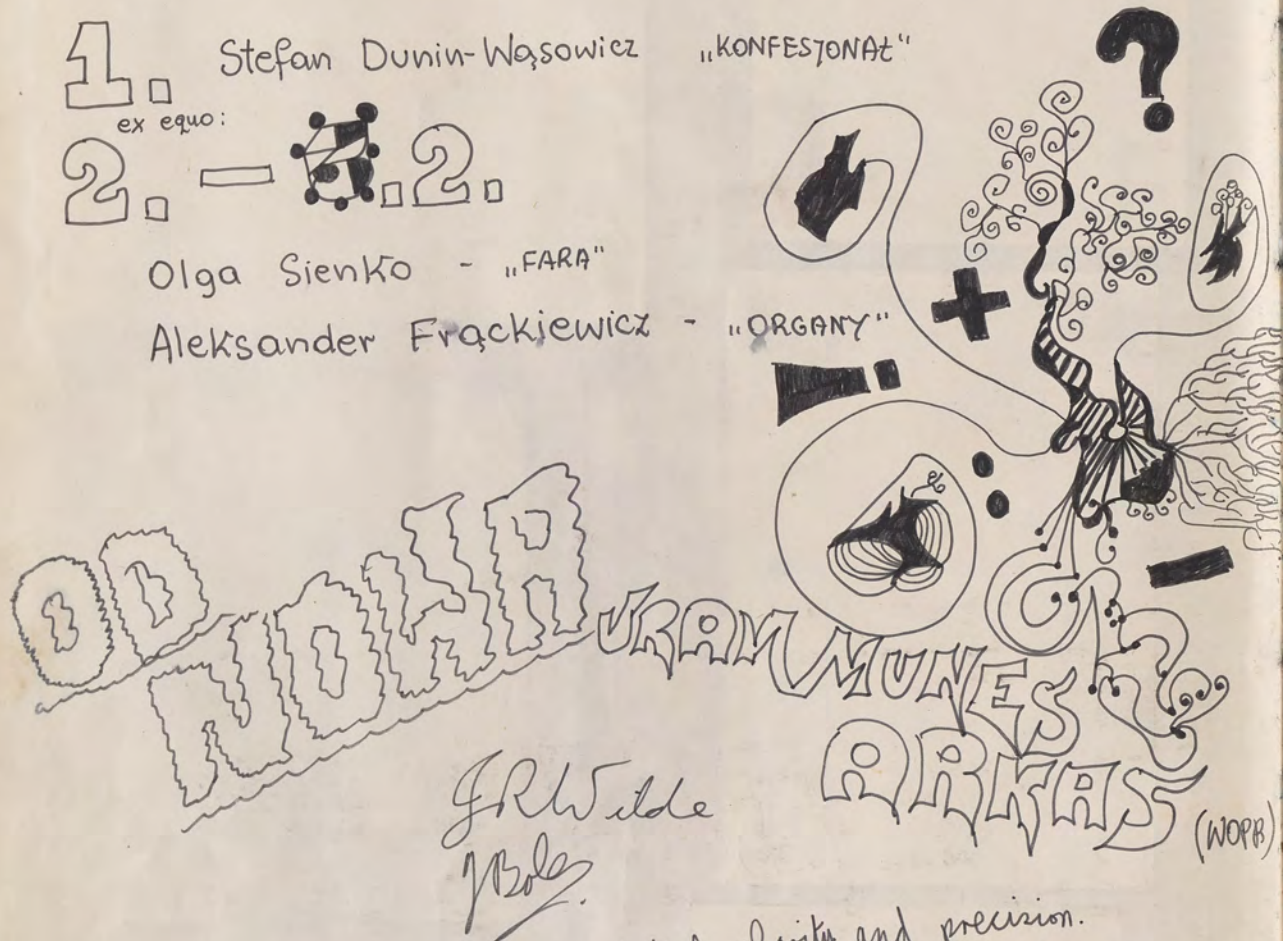 1. Stefan Dunin-Wąsowicz „KONFESJONAŁ"
ex equo:
2. - .2.
Olga Sienko - „FARA"
Aleksander Frąckiewicz - „ORGANY"
?
+
!
:
-
OD
NOWA
URAN MUNES
ARKAS
(WOPB)
JRWilde
and precision.